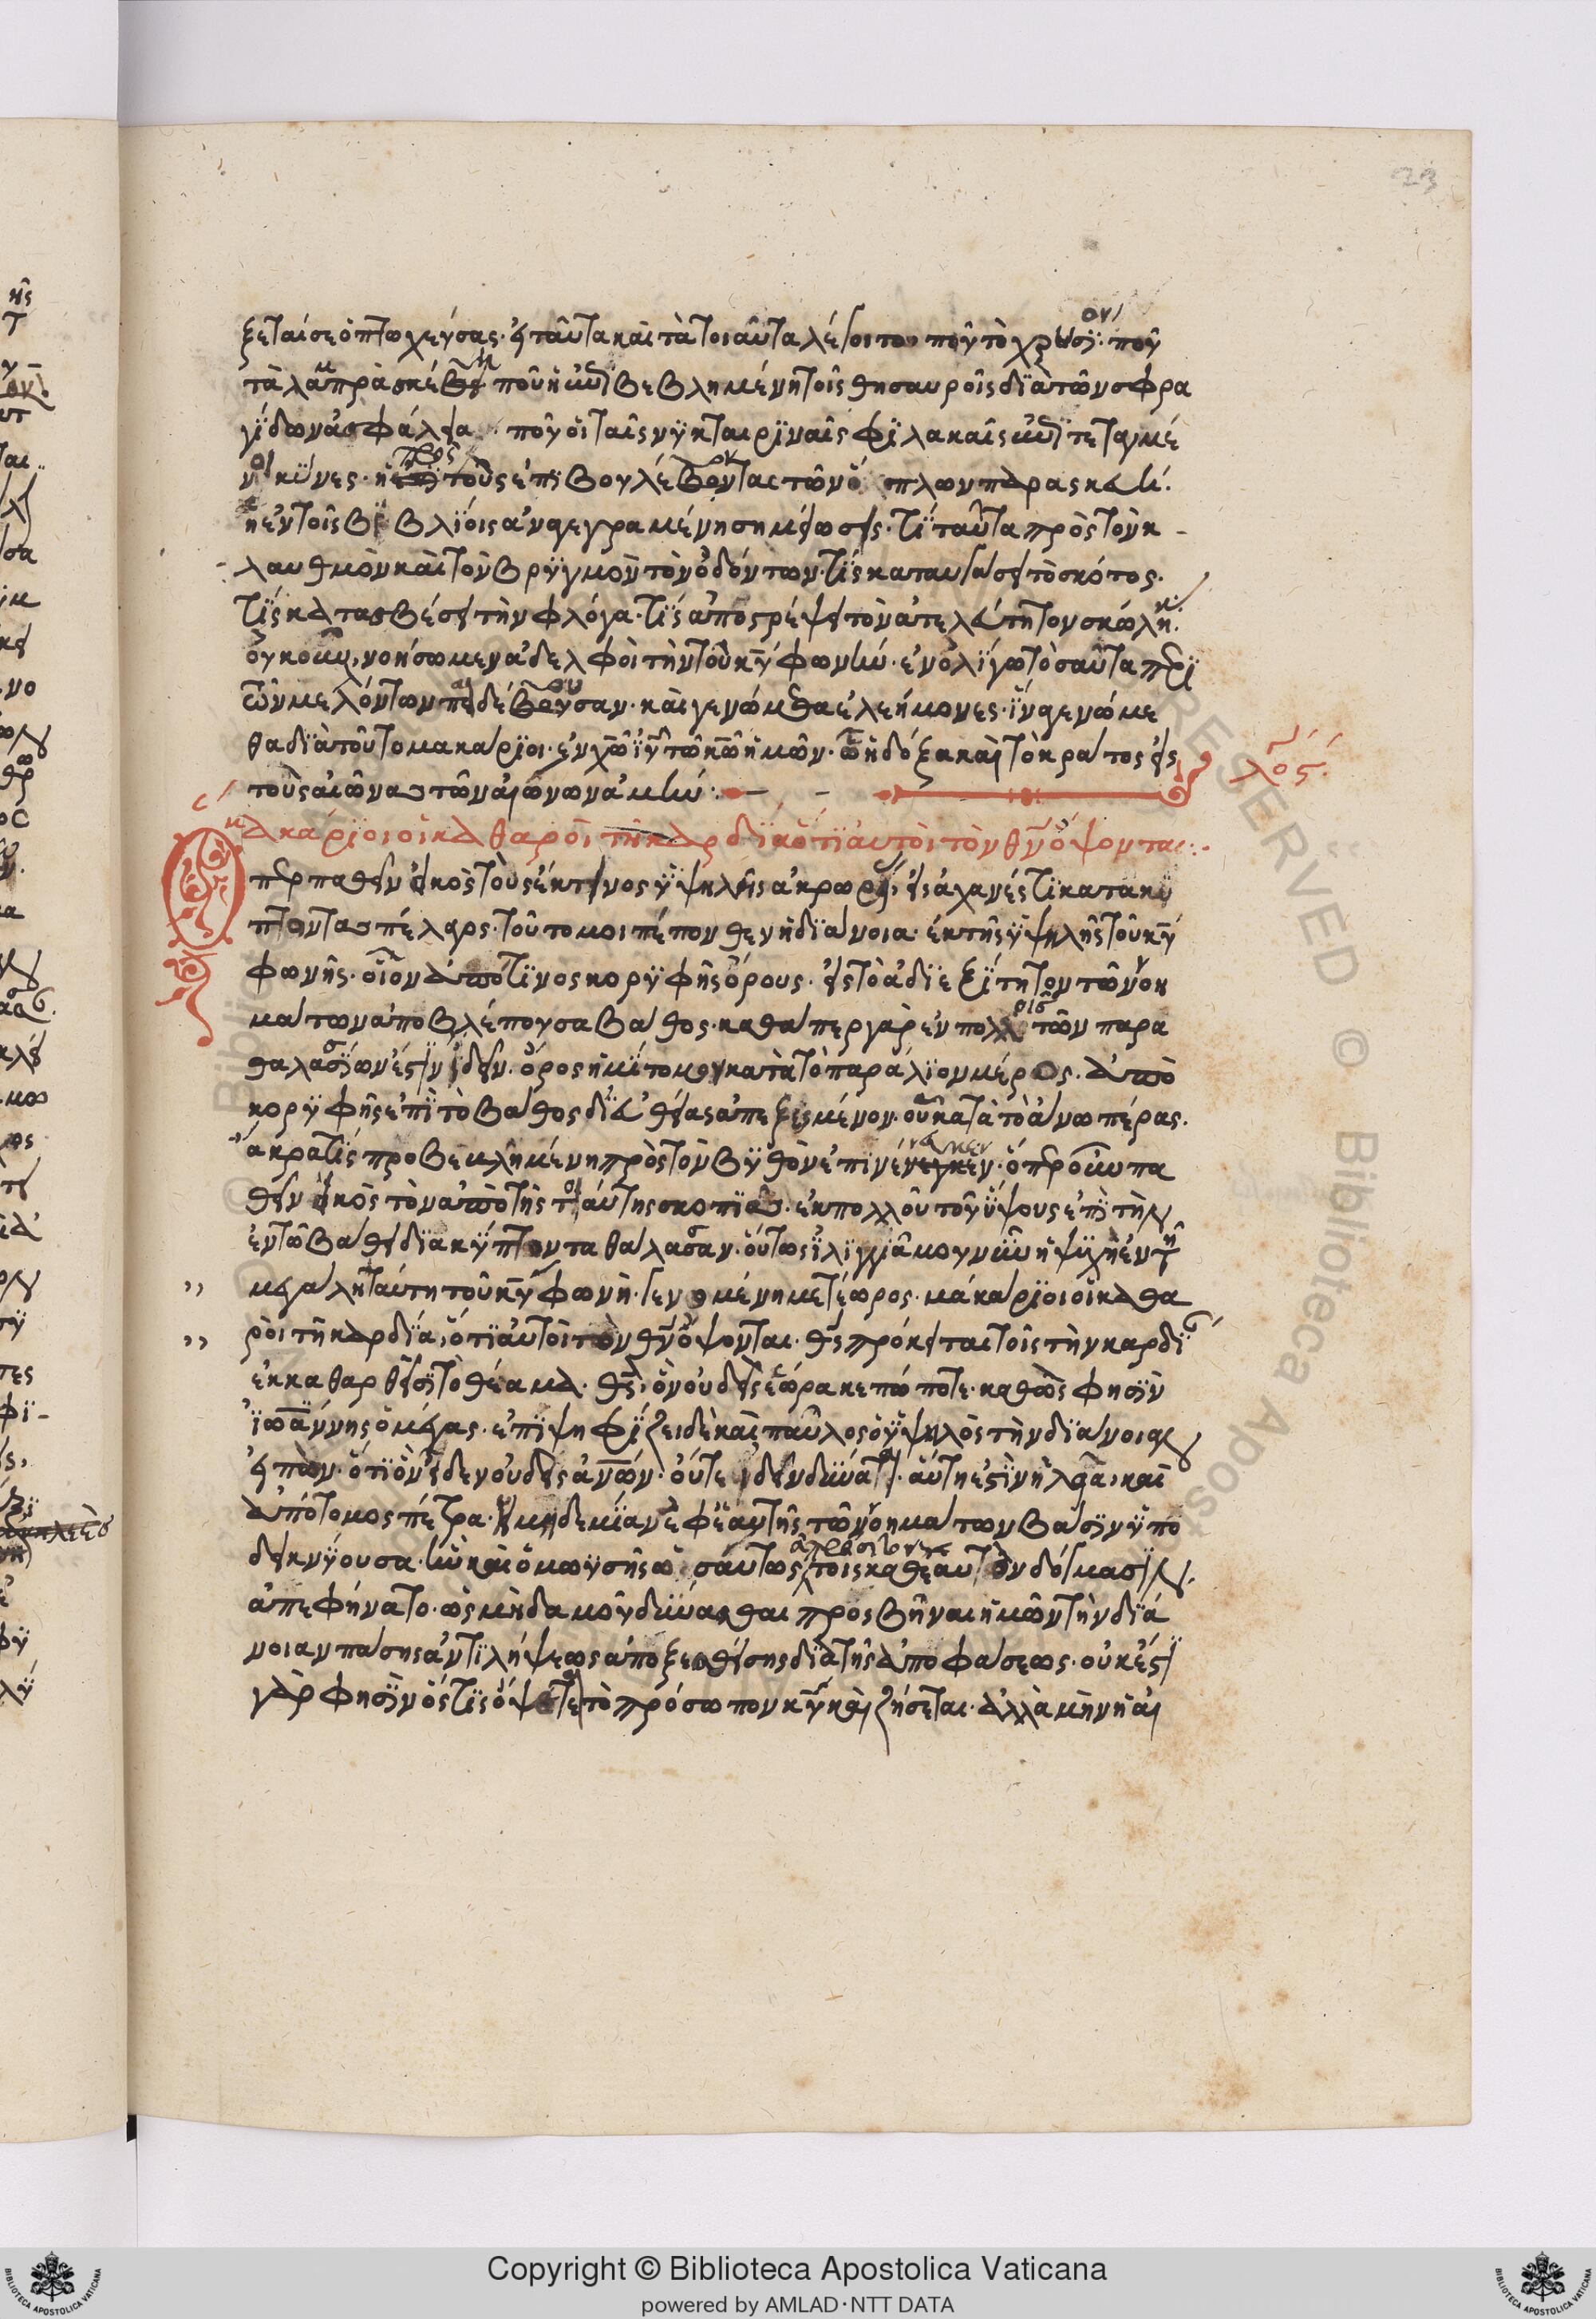 23
ξεταί σε ὁ πτωχεύσας. εἰ ταῦτα καὶ τὰ τοιαῦτα λέγοιτο ποῦ τὸ χρυσίον· ποῦ
τὰ λαμπρὰ σκεύη ποῦ ἡ βεβλημένη τοῖς θησαυροῖς διὰ τῶν σφρα
γίδων ἀσφάλεια· ποῦ οἱ ταῖς νϋκταιριναῖς φϊλακαῖς τεταγμέ
νοι κύνες· ἡ πρὸς τοὺς ἐπιβουλεύοντας τῶν ὅπλων παρασκευή.
ἡ ἐν τοῖς βιβλίοις ἀναγεγραμένη σημείωσεις· τί ταῦτα πρὸς τὸν κ-
λαυθμὸν καὶ τὸν βρϋγμὸν τὸν ὀδόντων· τίς καταυγάσει τὸ σκότος.
τίς κατασβέσει τὴν φλόγα· τίς ἀποστρέψει τὸν ἀτελεύτητον σκώληκ.
οὐκοῦν, νοήσωμεν ἀδελφοὶ τὴν τοῦ κυ φωνήν· ἐν ὀλίγω τοσαῦτα περὶ
τῶν μελόντων παιδεύουσαν· καὶ γενώμεθα ἐλεήμονες· ἵνα γενώμε
θα διὰ τοῦτο μακάριοι· ἐν χω ιυ τῶ κω ἡμῶν· ὧ ἡ δόξα καὶ τὸ κράτος εἰς
τοὺς αἰῶνας τῶν αἰώνων ἀμήν:
λος ς
Μακάριοι οἱ καθαροὶ τῆ καρδία ὅτι αὐτοὶ τὸν θν ὄψονται:.
Ὅπερ παθεῖν εἰκὸς τοὺς ἔκ τινος ὑψηλῆς ἀκρωρείας, εἰς ἀχανές τι κατακϋ
πτοντας πέλαγος· τοῦτό μοι πέπονθεν ἡ διάνοια· ἐκ τῆς ὑψηλῆς τοῦ κυ
φωνῆς· οἷον ἀπό τινος κορϋφῆς ὄρους· εἰς τὸ ἀδιεξίτητον τῶν νοη
μάτων ἀποβλέπουσα βάθος· καθάπερ γὰρ ἐν πολλοῖς τῶν παρα
θαλασσίων ἔστιν ἰδεῖν· ὄρος ἡμίτομον κατὰ τὸ παράλιον μέρος. ἀπὸ
κορϋφῆς ἐπὶ τὸ βάθος δι' εὐθείας ἀπεξισμένον· οὗ κατὰ τὸ ἄνω πέρας.
ἄκρα τίς προβεκλημένη πρὸς τὸν βϋθὸν ἐπινένευκεν· ὅπερ οὖν πα
θεῖν εἰκὸς τὸν ἀπὸ τῆς τοιαύτης σκοπιᾶς· ἐκ πολλοῦ τοῦ ὕψους ἐπὶ τὴν
ἐν τῶ βάθει διακϋπτοντα θάλασσαν· οὕτως ἰλιγγιᾶ μου νῦν ἡ ψυχὴ ἐν τῆ
μεγάλη ταύτη τοῦ κυ φωνῆ· γενομένη μετέωρος· μακάριοι οἱ καθα
ροὶ τῆ καρδία, ὅτι αὐτοὶ τὸν θν ὄψονται· θς πρόκειται τοῖς τὴν καρδί
ἐκκαθαρθεῖσι τὸ θέαμα· θς, ὃν οὐδεὶς ἑώρακε πώποτε· καθὼς φησὶν
ἰωάννης ὁ μέγας· ἐπιψηφίζει δὲ καὶ παῦλος ὁ ὑψηλὸς τὴν διάνοιαν
εἰπών· ὅτι ὃν εἶδεν οὐδεὶς ἀνων· οὔτε ἰδεῖν δύναται· αὕτη ἐστὶν ἡ λεία, καὶ
ἀπότομος πέτρα· ἡ μηδεμίαν ἐφ' ἑαυτῆς τῶν νοημάτων βάσιν ὑπο
δεικνύουσα· ἣν καὶ ὁ μωϋσῆς ὡσαύτως τοῖς καθ' ἑαυτὸν δόγμασιν.
ἀπεφήνατο· ὡς μὴδαμοῦ δύνασθαι προσβῆναι ἡμῶν τὴν διά
νοιαν πάσης ἀντιλήψεως ἀποξεσθείσης διὰ τῆς ἀποφάσεως· οὐκ ἔστι
γὰρ φησὶν ὅστις ὄψεται τὸ πρόσωπον κυ καὶ ζήσεται· ἀλλὰ μὴν ἡ αἰ
Copyright © Biblioteca Apostolica Vaticana
powered by AMLAD·NTT DATA